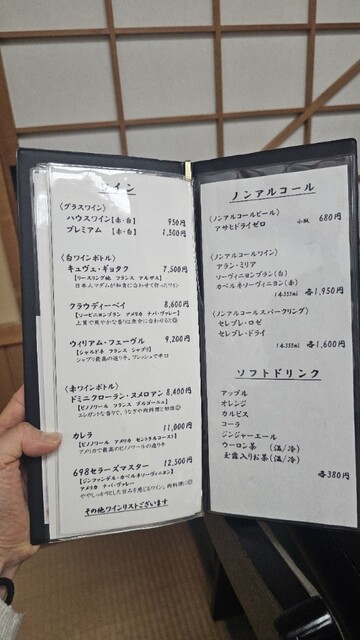 ワイン
〈グラスワイン〉
ハウスワイン【赤・白】 950円
プレミアム 【赤・白】 1,500円
〈白ワインボトル〉
キュヴェ・ギョタク 7,500円
【リースリング他 フランス アルザス】
日本人マダムが和食に合わせて作ったワイン
クラウディーベイ 8,600円
【ソービニオンブラン アメリカ ナパ・ヴァレー】
上質で爽やかな香りは魚介に合わせると◎
ウィリアム・フェーヴル 9,200円
【シャルドネ フランス シャブリ】
シャブリ最高の造り手。フレッシュで辛口
〈赤ワインボトル〉
ドミニクローラン・ヌメロアン 8,400円
【ピノノワール フランス ブルゴーニュ】
エレガントな香りで、うなぎや肉料理と相性◎
カレラ 11,000円
【ピノノワール アメリカ セントラルコースト】
アメリカで最高のピノノワールの造り手
698セラーズマスター 12,500円
【ジンファンデル・カベルネソーヴィニヨン】
アメリカ ナパ・ヴァレー
ややしっかりとした甘みを感じるワイン。肉料理に◎
その他ワインリストございます
ノンアルコール
〈ノンアルコールビール〉
アサヒドライゼロ 小瓶 680円
〈ノンアルコールワイン〉
アラン・ミリア
ソーヴィニヨンブラン(白)
カベルネソーヴィニヨン(赤)
各1,950円
〈ノンアルコールスパークリング〉
セレブレ・ロゼ
セレブレ・ドライ
1本355ml 各1,600円
ソフトドリンク
アップル
オレンジ
カルピス
コーラ
ジンジャーエール
ウーロン茶 (温/冷)
玉露入りお茶(温/冷)
各380円